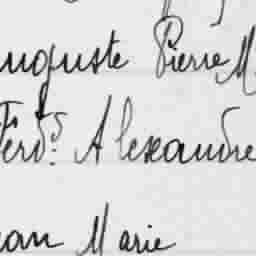 uguste Pierre M
Ferd.ᵈ Alexandre
ean Marie